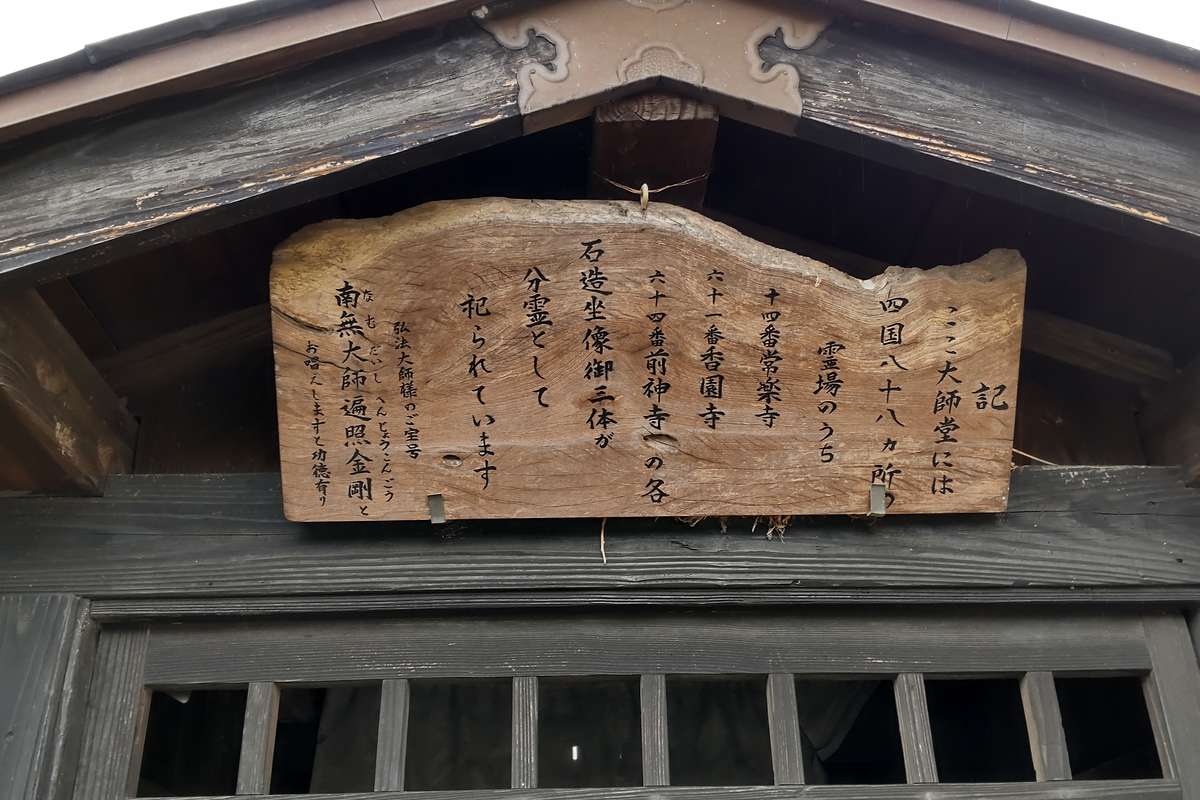 記
ここ大師堂には
四国八十八ヵ所の
霊場のうち
十四番常楽寺
六十一番香園寺
六十四番前神寺の各
石造坐像御三体が
分霊として
祀られています
弘法大師様のご宝号
南無大師遍照金剛と
なむだいしへんじょうこんごう
お唱えしますと功徳有り